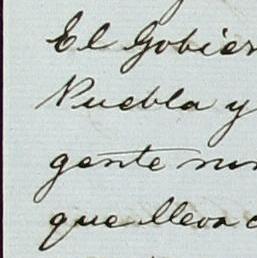 El Gobier
Puebla y
gente nu
que lleva